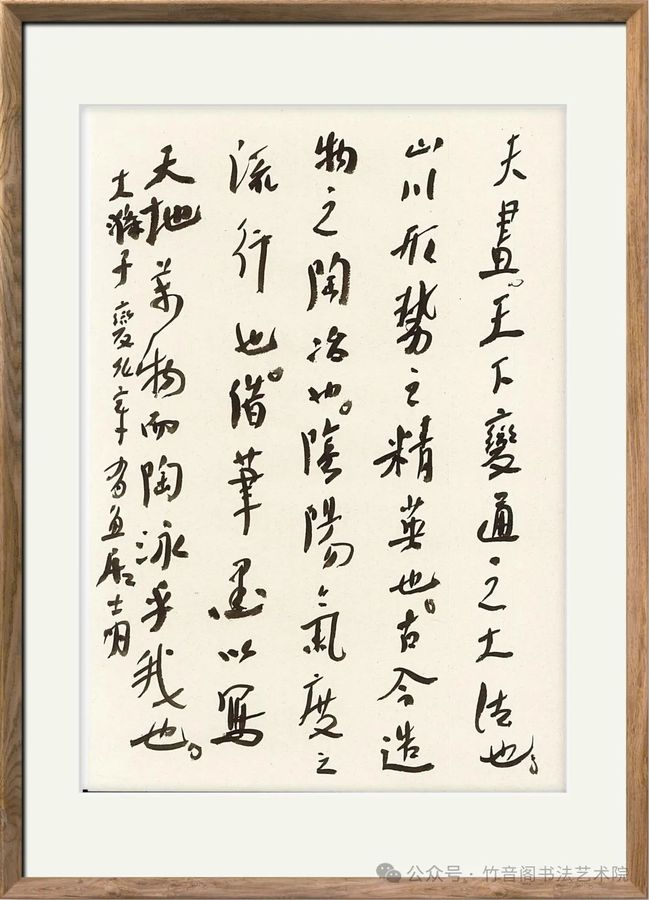 夫畫。天下變通之大法也。
山川形勢之精英也。古今造
物之陶冶也。陰陽氣度之
流行也。借筆墨以寫
天地萬物而陶泳乎我也。
大滌子變化章 魚居士明
公众号·竹音阁书法艺术院